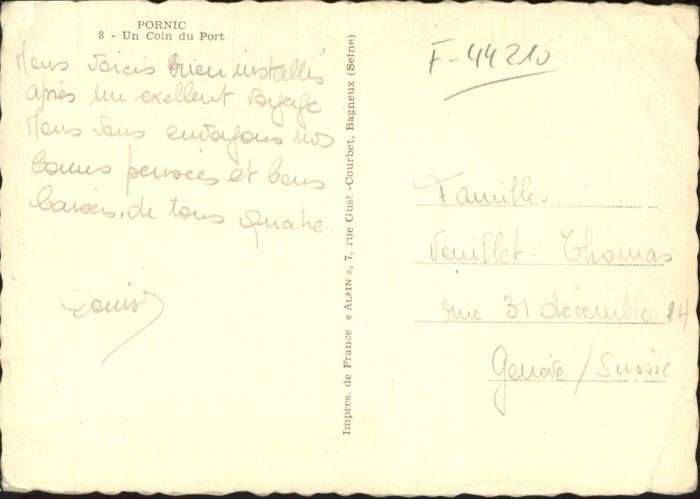 PORNIC
8 - Un Coin du Port
Nous voicis bien installés
après un exellent voyage
Nous vous envoyons nos
bonnes pensées et bons
baisés. de tous quatre.
Louis
Impres. de France « ALAIN », 7, rue Gust-Courbet, Bagneux (Seine)
F-44210
Familles
Veuillet-Thomas
rue 31 décembre 14
Genève/Suisse